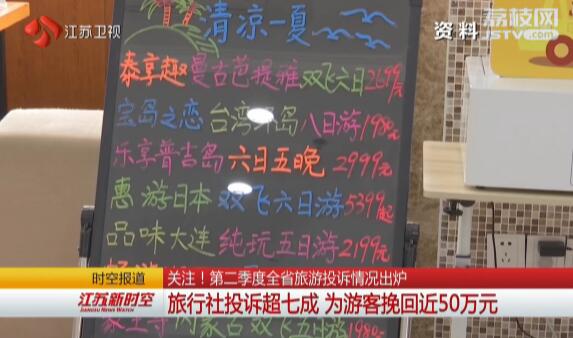 江苏卫视
资料
荔枝网
JSTV.com
清凉一夏
泰享趣 曼古芭提雅 双飞六日2699元
宝岛之恋 台湾环岛 八日游1980元
乐享普吉岛 六日五晚 2999元
惠游日本 双飞六日游5399起
品味大连 纯玩五日游2199元
时空报道
关注！第二季度全省旅游投诉情况出炉
江苏新时空
JIANGSU NEWS WATCH
旅行社投诉超七成 为游客挽回近50万元
内蒙古双飞五